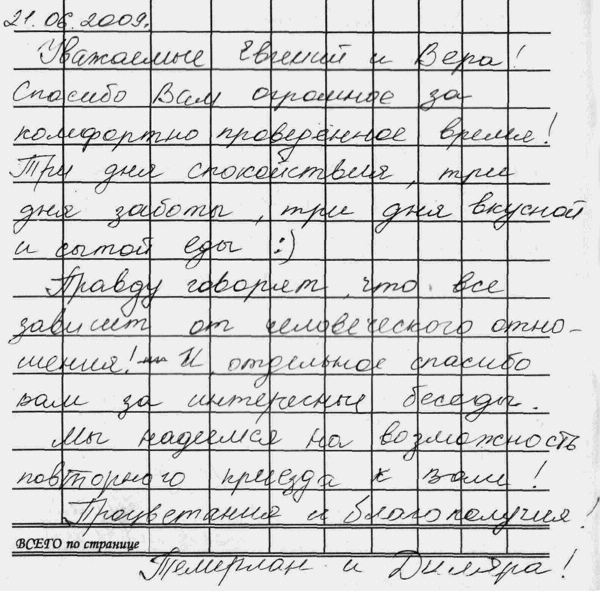 21.06.2009.
Уважаемые Евгений и Вера!
Спасибо Вам огромное за
комфортно проведённое время!
Три дня спокойствия, три
дня заботы, три дня вкусной
и сытой еды :)
Правду говорят, что все
зависит от человеческого отно-
шения! И отдельное спасибо
вам за интересные беседы.
Мы надеемся на возможность
повторного приезда к вам!
Процветания и благополучия!
ВСЕГО по странице
Темерлан и Диляра!